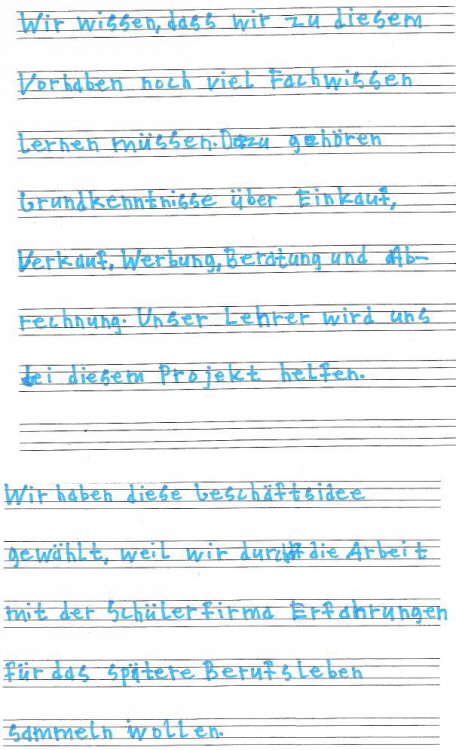 Wir wissen, dass wir zu diesem
Vorhaben noch viel Fachwissen
lernen müssen. Dazu gehören
Grundkenntnisse über Einkauf,
Verkauf, Werbung, Beratung und Ab-
rechnung. Unser Lehrer wird uns
bei diesem Projekt helfen.
Wir haben diese Geschäftsidee
gewählt, weil wir durch die Arbeit
mit der Schülerfirma Erfahrungen
für das spätere Berufsleben
sammeln wollen.